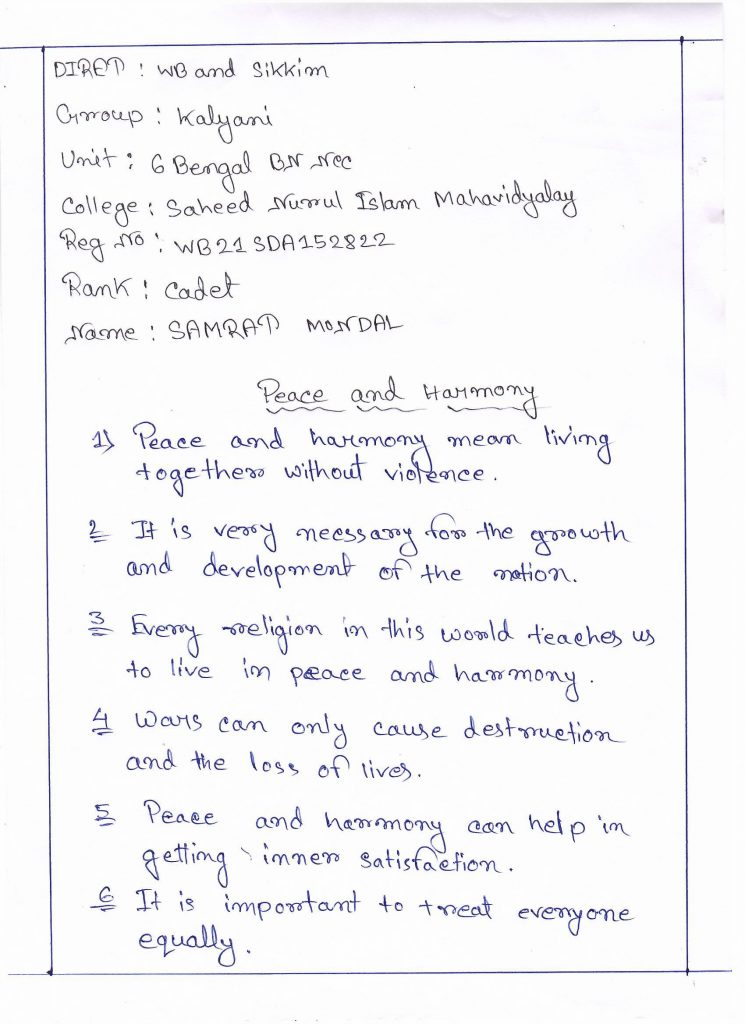 DIRET : WB and Sikkim
Group : Kalyani
Unit : 6 Bengal BN NCC
College : Saheed Nurul Islam Mahavidyalay
Reg No : WB21SDA152822
Rank : Cadet
Name : SAMRAT MONDAL
Peace and Harmony
1) Peace and harmony mean living
together without violence.
2 It is very necssary for the growth
and development of the nation.
3 Every religion in this world teaches us
to live in peace and harmony.
4 Wars can only cause destruction
and the loss of lives.
5 Peace and harmony can help in
getting inner satisfaction.
6 It is important to treat everyone
equally.